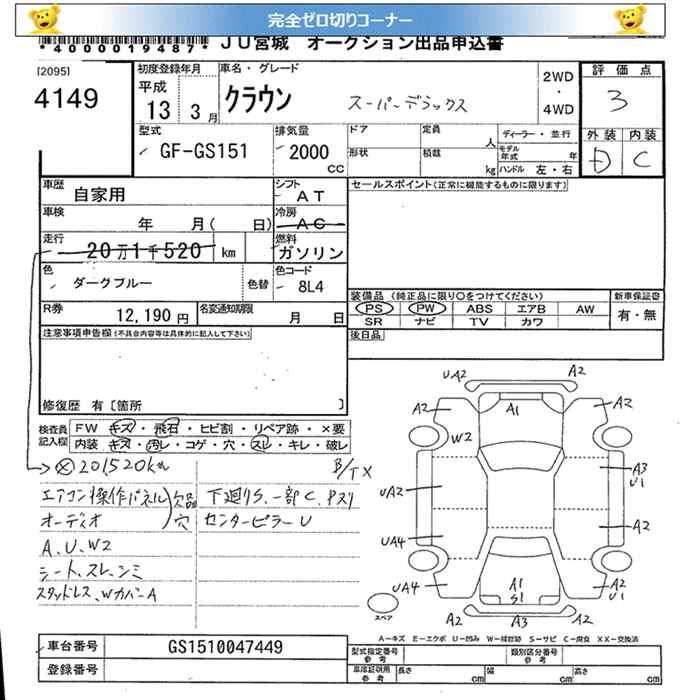 完全ゼロ切りコーナー
*4000019487* JU宮城 オークション出品申込書
[2095]
4149
初度登録年月
平成
13 3月
車名・グレード
クラウン スーパーデラックス
2WD
・
4WD
評価点
3
外装 内装
D C
型式
GF-GS151
排気量
2000
cc
ドア 定員 人
形状 積載 kg
ディーラー・並行
モデル年式 年
ハンドル 左・右
車歴
自家用
シフト
AT
車検
年 月( 日)
冷房
AC
走行
20万1千520 km
燃料
ガソリン
色
ダークブルー
色替
色コード
8L4
R券
12,190円
名変通知期限
月 日
セールスポイント(正常に機能するものに限ります)
装備品(純正品に限り○をつけてください)
PS PW ABS エアB AW
SR ナビ TV カワ
新車保証書
有・無
後日品
注意事項申告欄(不具合内容等は具体的に記入して下さい)
修復歴 有[箇所 ]
検査員記入欄
FW キズ・飛石・ヒビ割・リペア跡・×要
内装 キズ・汚レ・コゲ・穴・スレ・キレ・破レ
201520km
B/TX
エアコン操作パネル 欠品
オーディオ 穴
下廻りS、一部C、Pスリ
センターピラーU
A、U、W2
シート、スレ、シミ
スタッドレス、WカバーA
UA2 A2
A2 A1 A2
W2
UA2 A3
U1
UA4 A2
UA4 A1 A2
S1 U1
A2 A3 A2
スペア
A―キズ E―エクボ U―凹み W―補修跡 S―サビ C―腐食 XX―交換済
車台番号
GS1510047449
登録番号
型式指定番号
参考
類別区分番号
参考
車庫証明用
参考
長さ cm 幅 cm 高さ cm